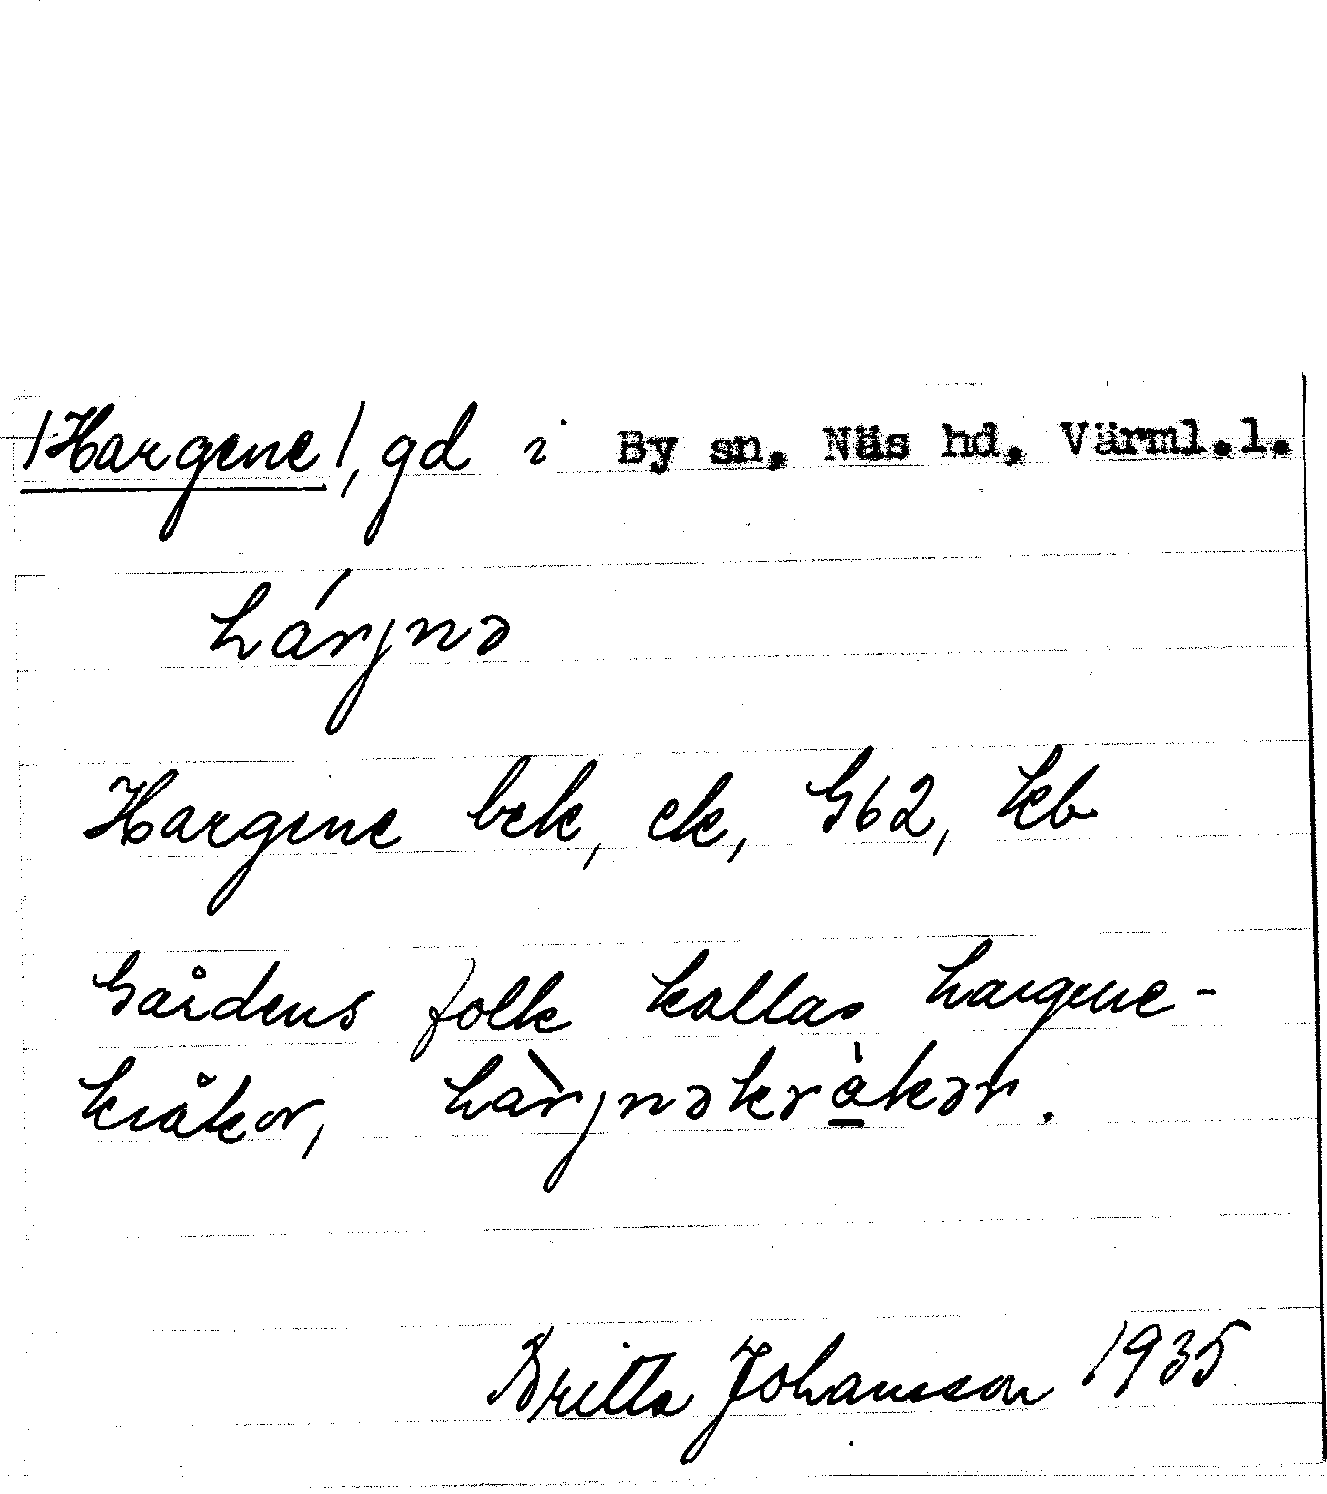 /Hargene/, gd i By sn, Näs hd, Värml.l.
hárjnə
Hargene bek, ek, G62, kb
Gårdens folk kallas hargene-
kråkor, hàrjnəkrå̀kər.
Britta Johansson 1935